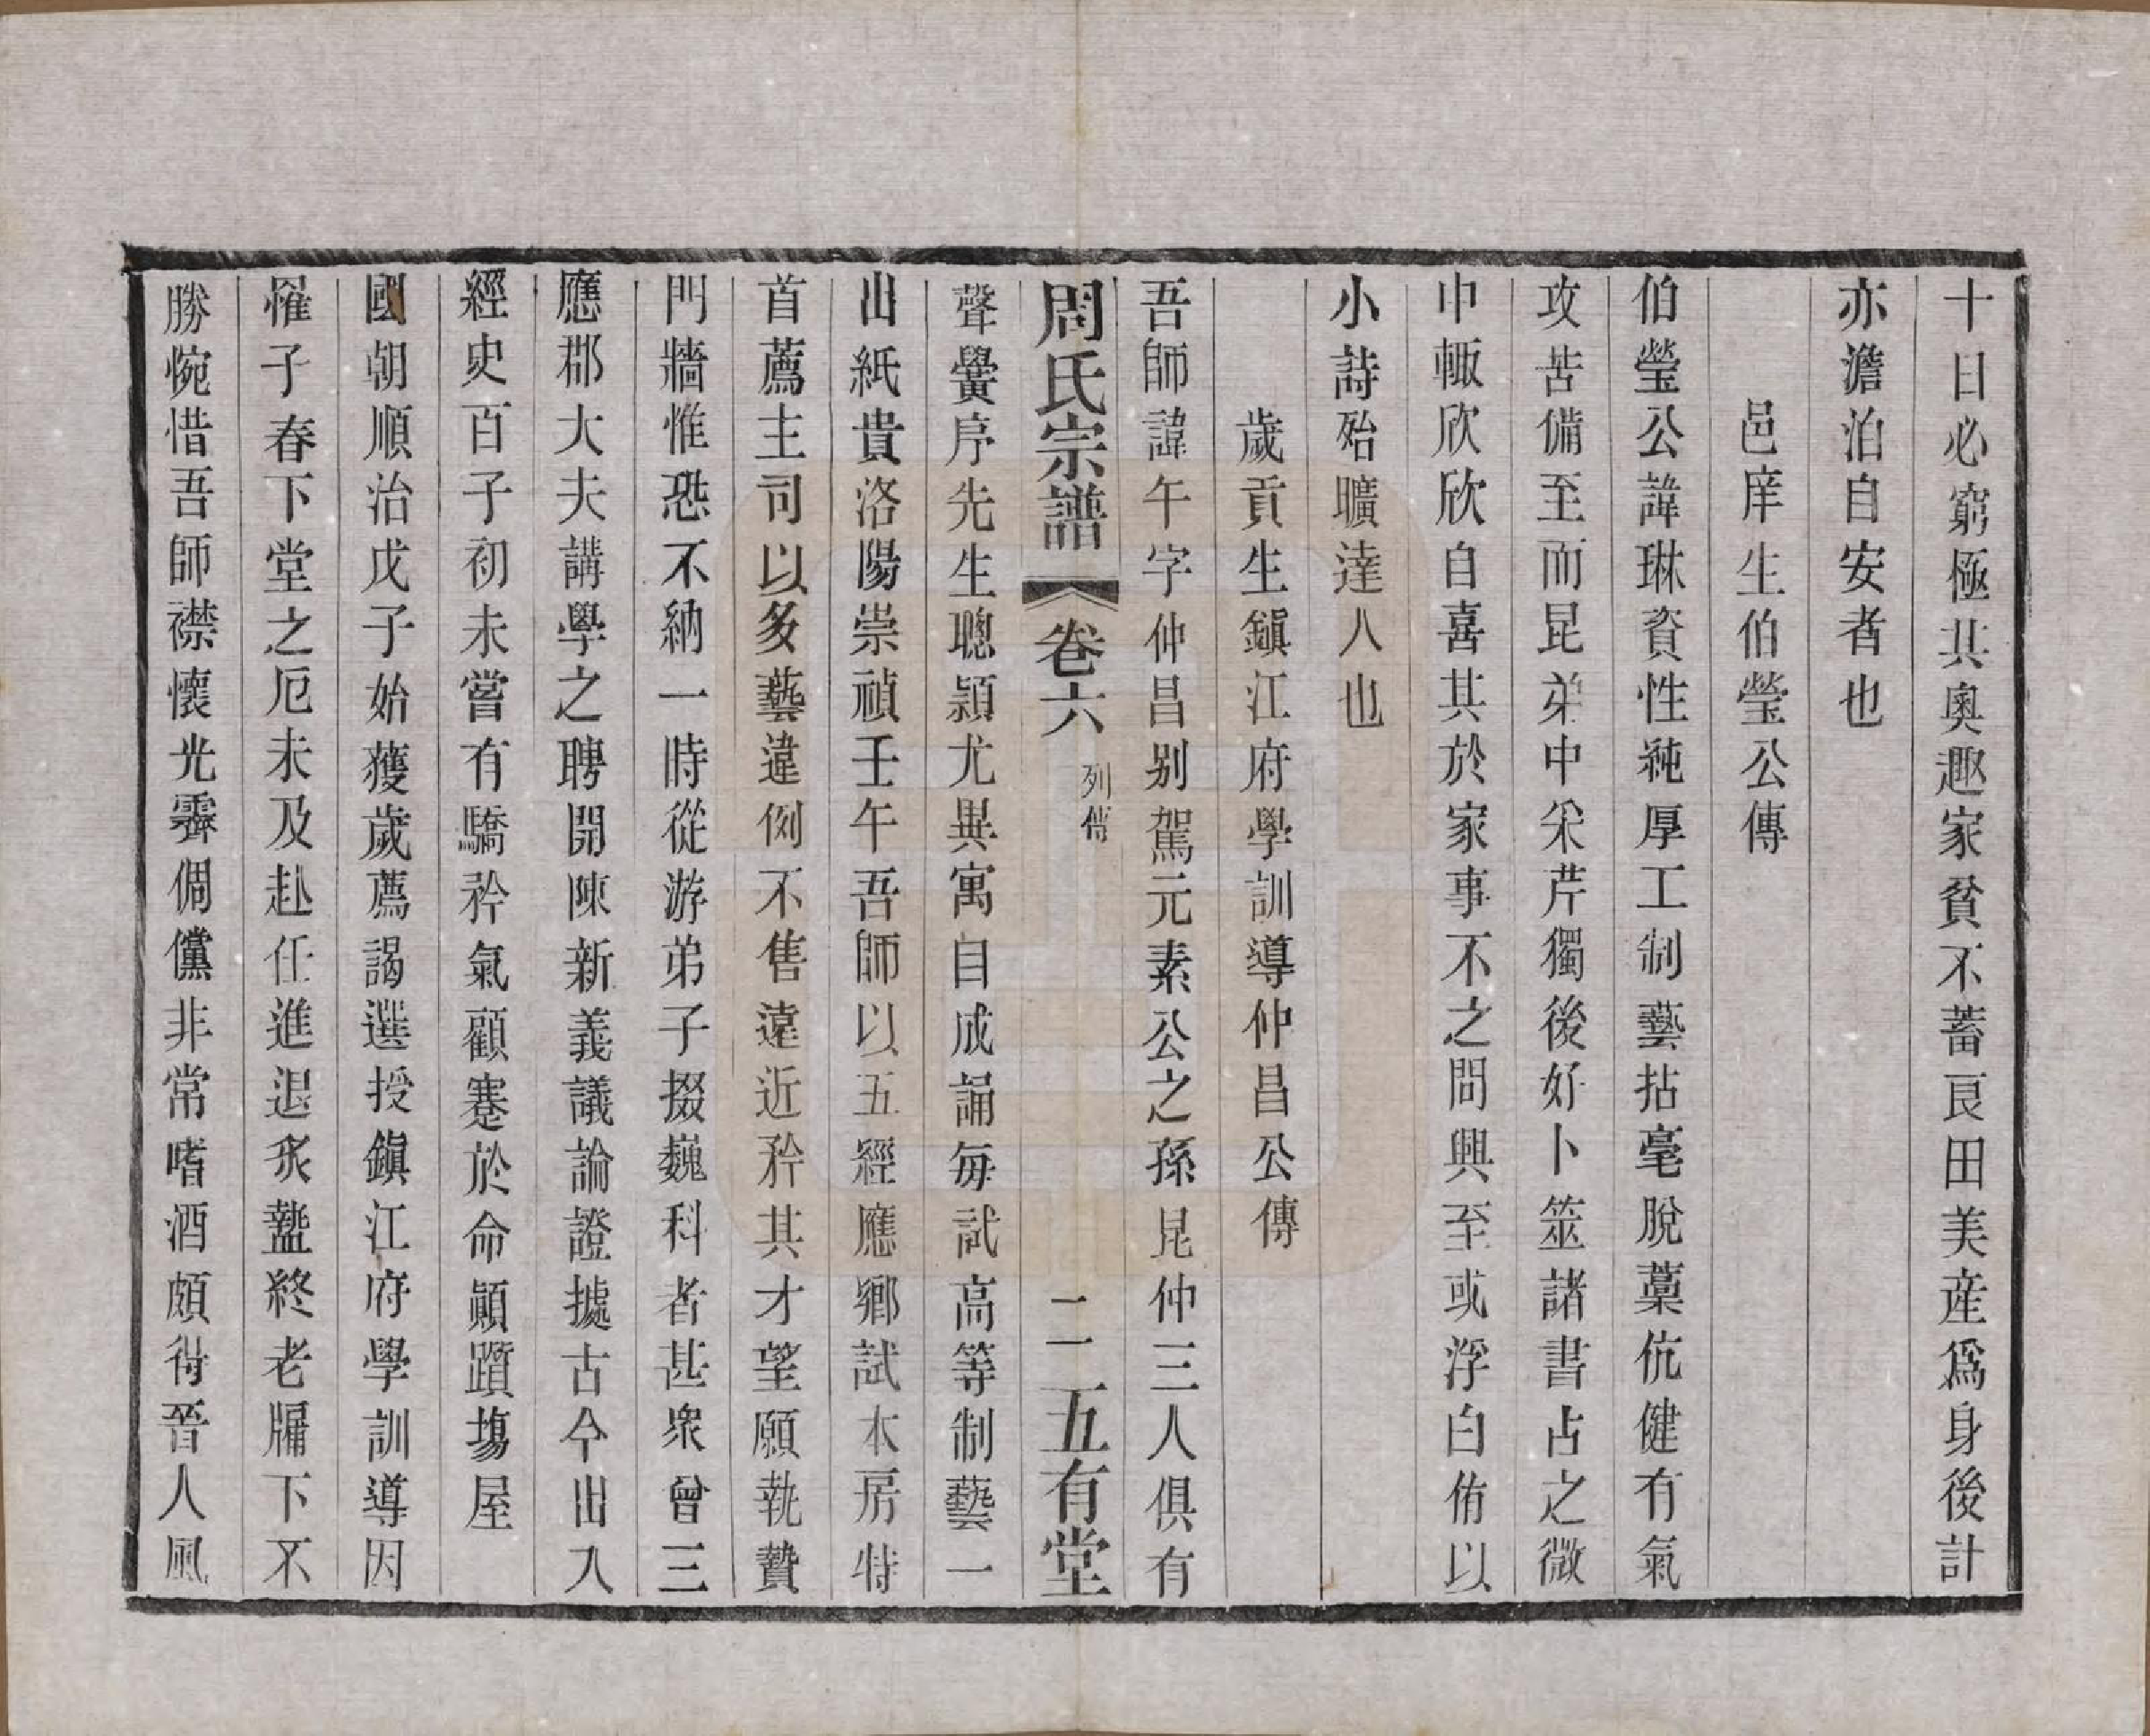 十日必窮極其奧趣家貧不蓄良田美産爲身後計
亦澹泊自安者也
邑庠生伯瑩公傳
伯瑩公諱琳資性純厚工制藝拈毫脫藁伉健有氣
攻苦備至而昆弟中采芹獨後好卜筮諸書占之微
中輙欣欣自喜其於家事不之問興至或浮白侑以
小詩殆曠達人也
歲貢生鎭江府學訓導仲昌公傳
吾師諱午字仲昌别駕元素公之孫昆仲三人俱有
周氏宗譜 卷六 列傳 二 五有堂
聲黌序先生聰潁尤異寓目成誦每試高等制藝一
出紙貴洛陽崇禎壬午吾師以五經應鄉試本房特
首薦主司以多藝違例不售遠近矜其才望願執贄
門牆惟恐不納一時從游弟子掇巍科者甚衆曾三
應郡大夫講學之聘開陳新義議論證據古今出入
經史百子初未嘗有驕矜氣顧蹇於命顚躓塲屋
國朝順治戊子始獲歲薦謁選授鎭江府學訓導因
罹子春下堂之厄未及赴任進退炙盭終老牖下不
勝惋惜吾師襟懷光霽倜儻非常嗜酒頗得晉人風